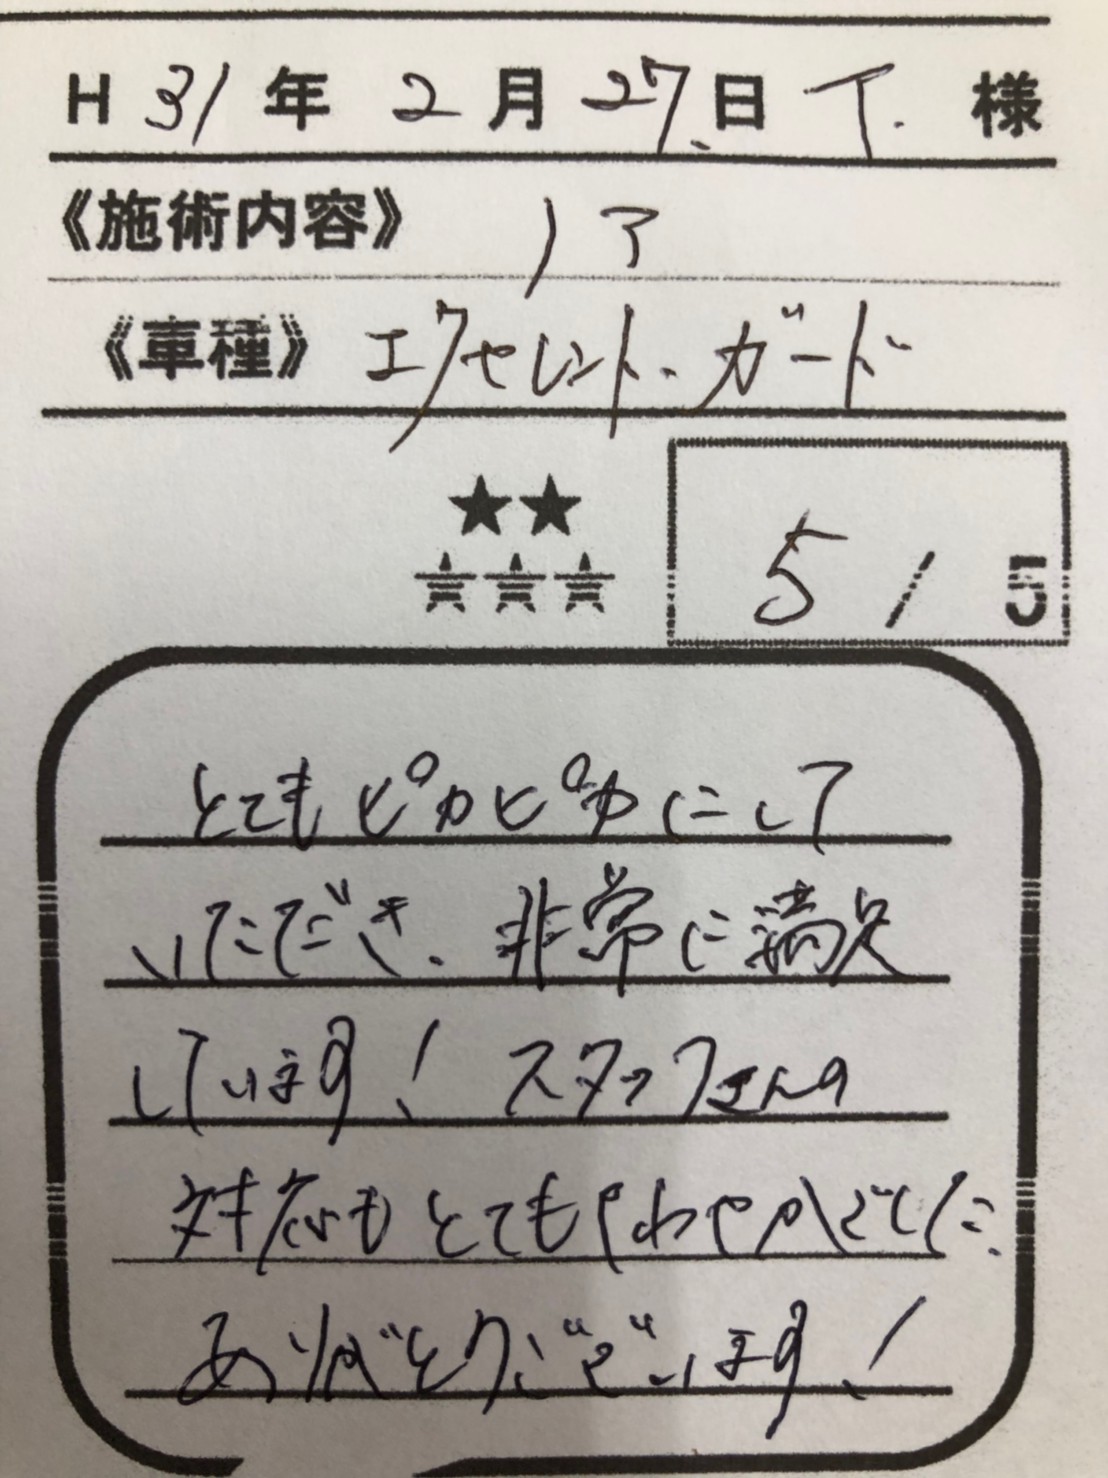 H 31 年 2 月 27.日 T. 様
《施術内容》 ノア
《車種》 エクセレント.ガード
★★
★★★
5 / 5
とてもピカピカにして
いただき、非常に満足
しています!スタッフさんの
対応もとてもさわやかでした.
ありがとうございます!